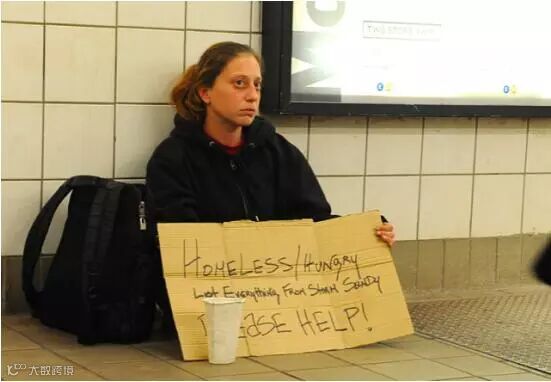 HOMELESS/HUNGRY
LOST EVERYTHING FROM STORM SANDY
PLEASE HELP!
大数跨境